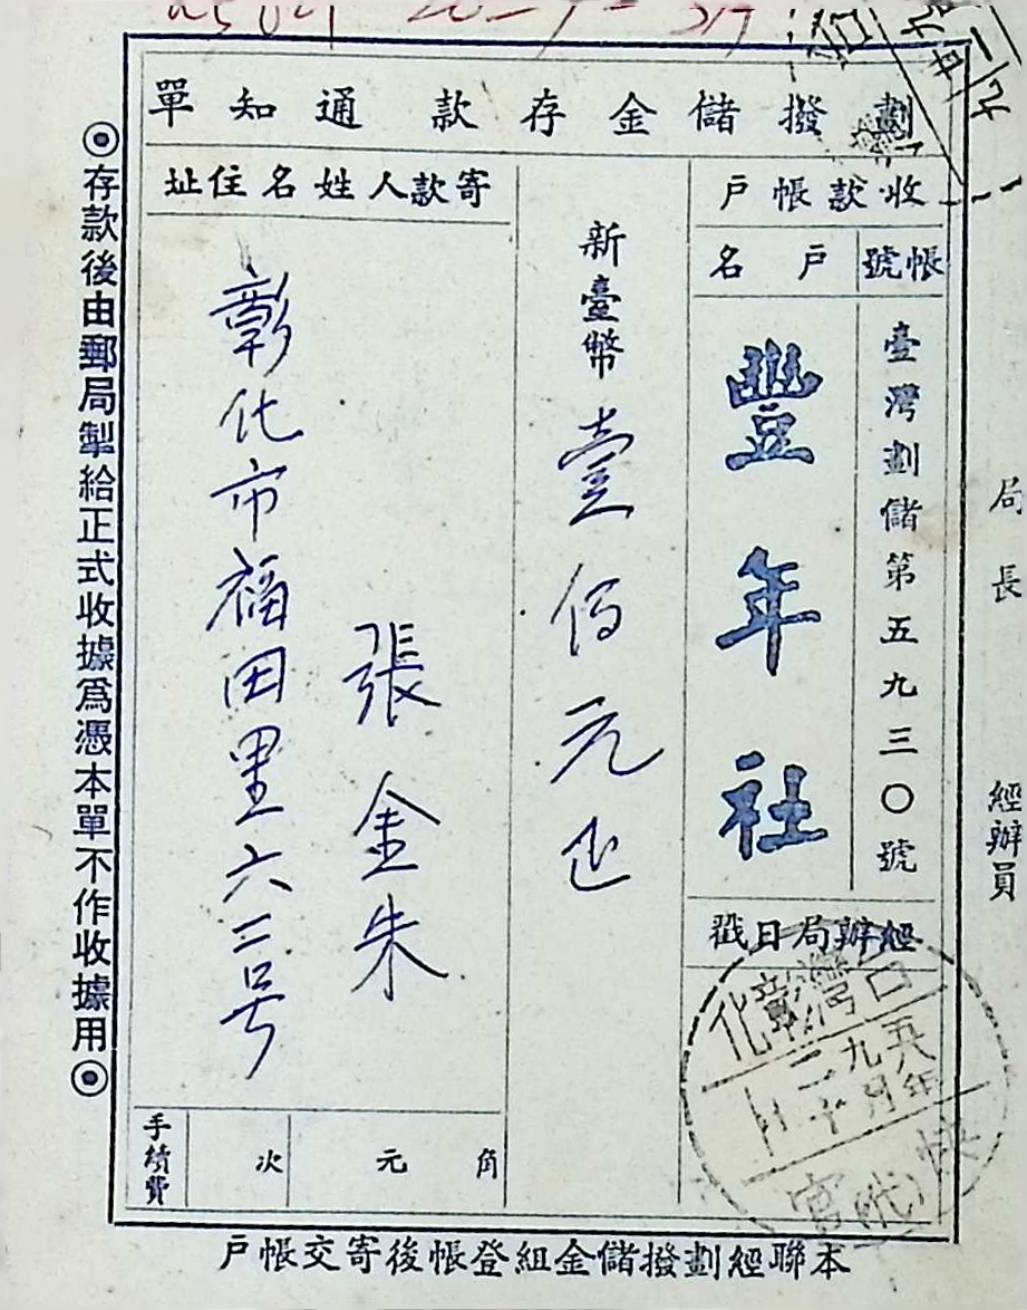 劃撥儲金存款通知單
收款帳戶
帳號
戶名
臺灣劃儲第五九三〇號
豐年社
經辦局日戳
新臺幣壹佰元正
寄款人姓名住址
張金朱
彰化市福田里六三号
手續費
次
元
角
◎存款後由郵局掣給正式收據爲憑本單不作收據用◎
本聯經劃撥儲金組登帳後寄交帳戶
局長
經辦員
台灣彰化